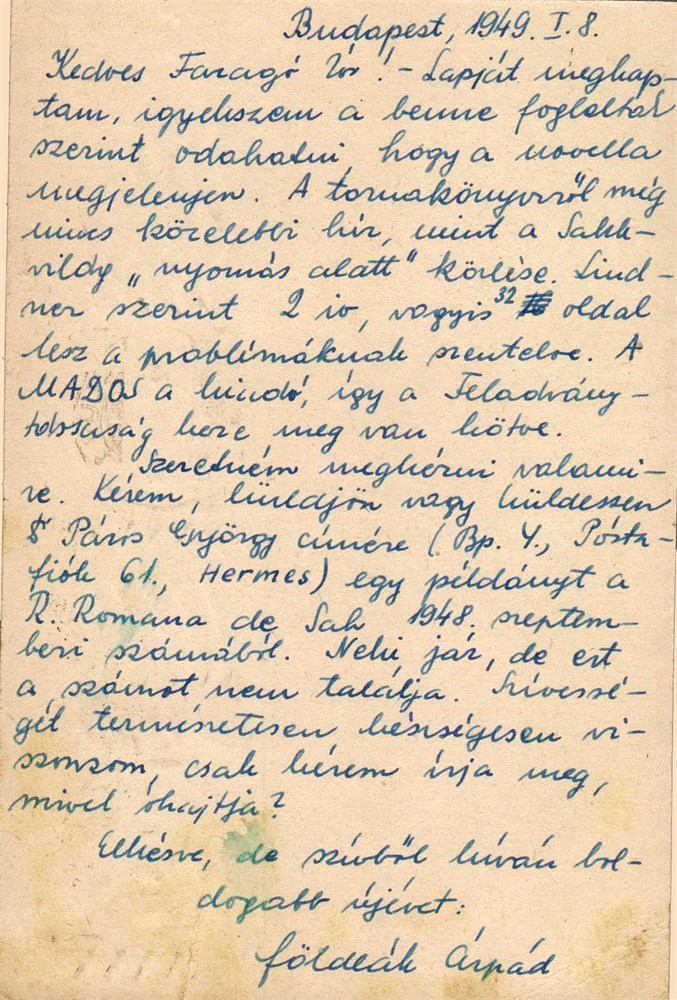 Budapest, 1949. I. 8.
Kedves Faragó Úr! - Lapját megkap-
tam, igyekszem a benne foglaltak
szerint odahatni, hogy a novella
megjelenjen. A tornakönyvről még
nincs közelebbi hír, mint a Sakk-
világ „nyomás alatt" közlése. Lind-
ner szerint 2 ív, vagyis 32 oldal
lesz a problémáknak szentelve. A
MADOSz a kiadó, így a Feladvány-
társaság keze meg van kötve.
Szeretném megkérni valami-
re. Kérem, küldjön vagy küldessen
Páros György címére (Bp. 4., Posta-
fiók 61., Hermes) egy példányt a
R. Romana de Sah 1948. szeptem-
beri számából. Neki jár, de ezt
a számot nem találja. Szívessé-
gét természetesen készségesen vi-
szonzom, csak kérem írja meg,
mivel óhajtja?
Elkésve, de szívből kíván bol-
dogabb újévet:
Földeák Árpád